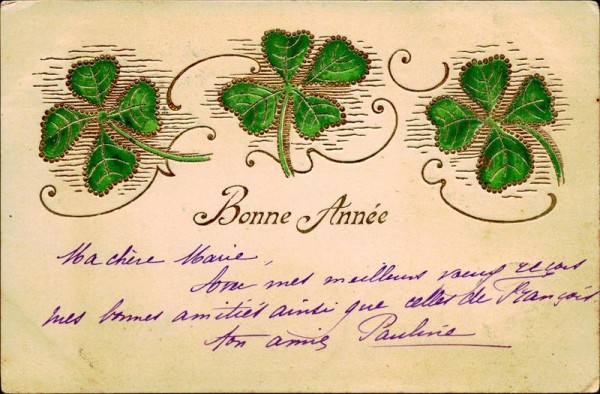 Bonne Année
Ma chère Marie,
Avec mes meilleurs vœux reçois
mes bonnes amitiés ainsi que celles de François
Ton amie Pauline